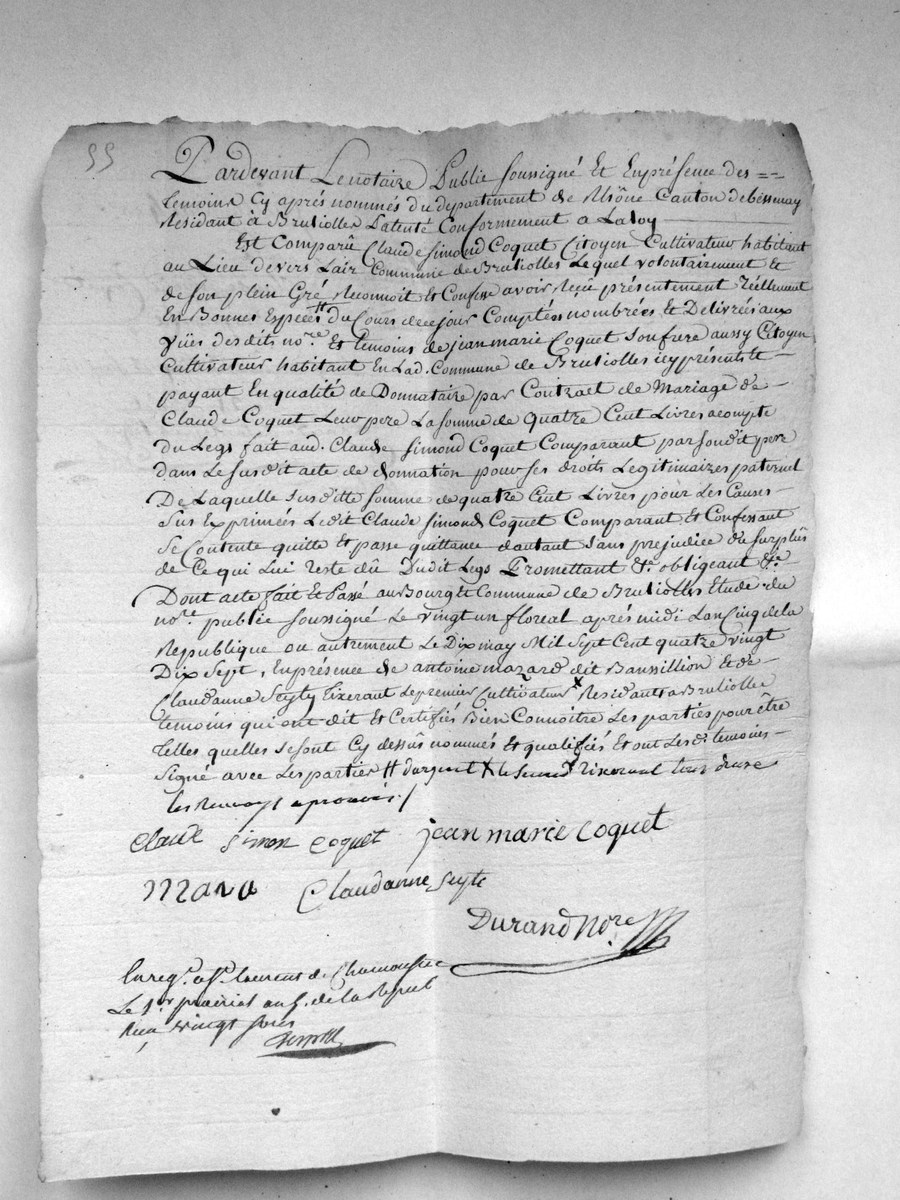 55
Pardevant Le notaire Public soussigné Et En présence des
temoins cy après nommés du departement de Rhône Canton de bessenay
Residant à Brullioles Patenté Conformement a La Loy
Est Comparû Claude Simond Coquet Citoyen Cultivateur habitant
au Lieu de vers Lair Commune de Brullioles Lequel volontairement et
de son plein Gré, Reconnoit et Confesse avoir Reçu présentement Réellement
En Bonnes Espéces # du Cours de ce jour Comptées nombrées et Délivrées aux
vües desdits nore. Et temoins de jean marie Coquet son frere aussy Citoyen
Cultivateur habitant En Lad. Commune de Brullioles icy présent et
payant En qualité de Donnataire par Contract de Mariage de
Claude Coquet Leur pere La somme de quatre Cent Livres acompte
du Legs fait aud. Claude Simond Coquet Comparant par sondit pere
dans Le susdit acte de donnation pour ses droits Legitimaires paternel
De Laquelle susditte somme de quatre Cent Livres pour Les Causes
sus Exprimées Ledit Claude Simond Coquet Comparant et Confessant
se Contente quitte et passe quittance dautant sans prejudice du surplûs
de Ce qui Lui reste dû Dudit Legs Promettant &a. obligeant &a.
Dont acte fait et Passé au Bourg et Commune de Brullioles Etude du
nore. public soussigné Le vingt un floreal après midi Lan Cinq de la
Republique ou autrement Le Dix may Mil Sept Cent quatre vingt
Dix Sept, En présence de antoine mazard dit Banssillion et de
Claudanne Seyty tixerant Le premier Cultivateur x Residants a Brullioles
temoins qui ont dit et Certifiés Bien Connoitre Les parties pour être
telles quelles se sont Cy dessûs nommés et qualifiés Et ont Les dt. temoins
Signé avec Les parties # dargent x le second tixerand tous deux
les Renvoys aprouvés /
Claude simon coquet jean marie coquet
Claudanne seyte
Durand Nore.
Enreg. a St. laurent de Chamousset
Le 1er prairial an 5. de la Repub
Reçu vingt sous